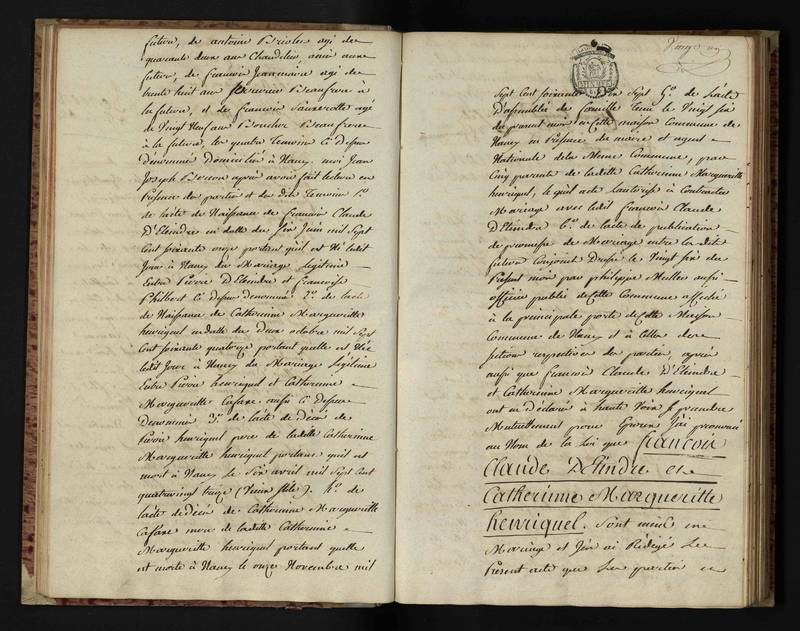 future, de antoine Briclos agé de
quarante deux ans Chandelier, amie aux
futurs, de françois Jeanmaire agé de
trente huit ans Beaufrere à
la future, et de francois Sauverotte agé
de Vingt Neuf ans Boucher Beaufrere
à la future, les quatre temoins Ci Dessus
Dénommés Domiciliés à Nancy. moi Jean
Joseph après avoir fait lecture en
Présence des parties et des dits temoins 1°.
de l'acte de Naissance de francois Claude
D'Etindre en datte du Juin mil Sept
Cent soixante onze portant qu'il est Né ledit
Jour à Nancy du Mariage Legitime
Entre Pierre D'Etindre et francoise
Philbert Ci dessus Denommés 2°. de lacte
de Naissance de Catherine Margueritte
henriquel en datte du Deux octobre mil Sept
Cent soixante quatorze portant quelle est Née
ledit Jour à Nancy du Mariage Légitime
Entre Pierre henriquel et Catherinne
Margueritte Cafaxe aussi Ci dessus
Denommés 3°. de lacte de Décès de
Pierre henriquel pere de laditte Catherinne
Margueritte henriquel portant qu'il est
mort à Nancy le Six avril mil Sept Cent
quatrevingt treize (Vieux stile) 4°. de
lacte de décès de Catherinne Margueritte
Cafaxe mere de laditte Catherinne
Margueritte henriquel portant quelle
est morte à Nancy le onze Novembre mil
Sept Cent soixante Sept 5°. de l'acte
D'assemblée de famille tenu le Vingt Six
du present mois en cette maison Commune de
Nancy en Présence du maire et agent
Nationale de la Meme Commune, par
Cinq parents de ladite Catherinne Margueritte
henriquel, lequel acte L'autorise à Contracter
Mariage avec ledit francois Claude
D'Etindre 6°. de lacte de publication
de promesse de Mariage entre les dits
futurs Conjoints Dressé le Vingt Six du
Present mois par philippe Muller aussi
officier public de cette Commune affiché
à la principale porte de cette Maison
Commune de Nancy et à celles des
sections respectives des parties, après
aussi que francois Claude D'Etindre
et Catherinne Margueritte henriquel
ont eu déclaré à haute Voix se prendre
Mutuellement pour Epoux J'ai prononcé
au Nom de la loi que francois
Claude D'Etindre et
Catherinne Margueritte
henriquel. Sont unis en
Mariage et J'en ai Rédigé Le
Present acte que Les parties et